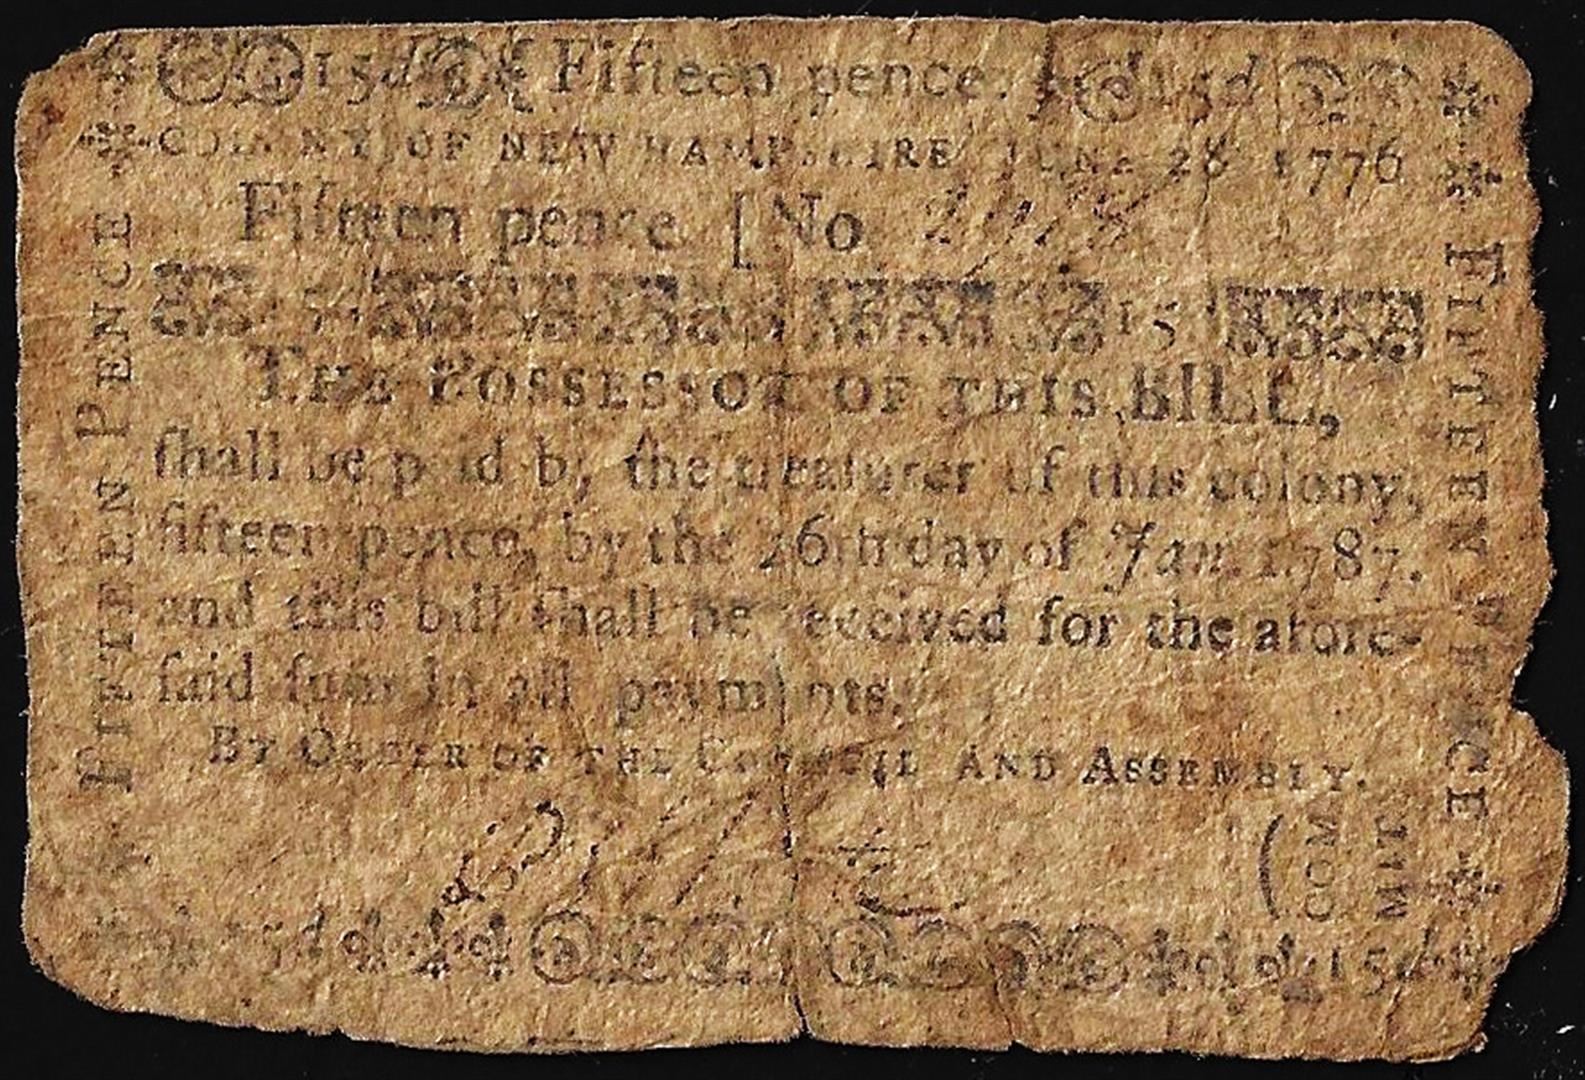 15d Fifteen pence. 15d
COLONY OF NEW HAMPSHIRE JUNE 28 1776
Fifteen pence [No
15
THE POSSESSOR OF THIS BILL,
ſhall be paid by the treaſurer of this colony,
fifteen pence, by the 26th day of Jan. 1787.
and this bill ſhall be received for the afore-
ſaid ſum in all payments.
BY ORDER OF THE COUNCIL AND ASSEMBLY.
(COM
MIT
15d 15d
FIFTEEN PENCE
FIFTEEN PENCE